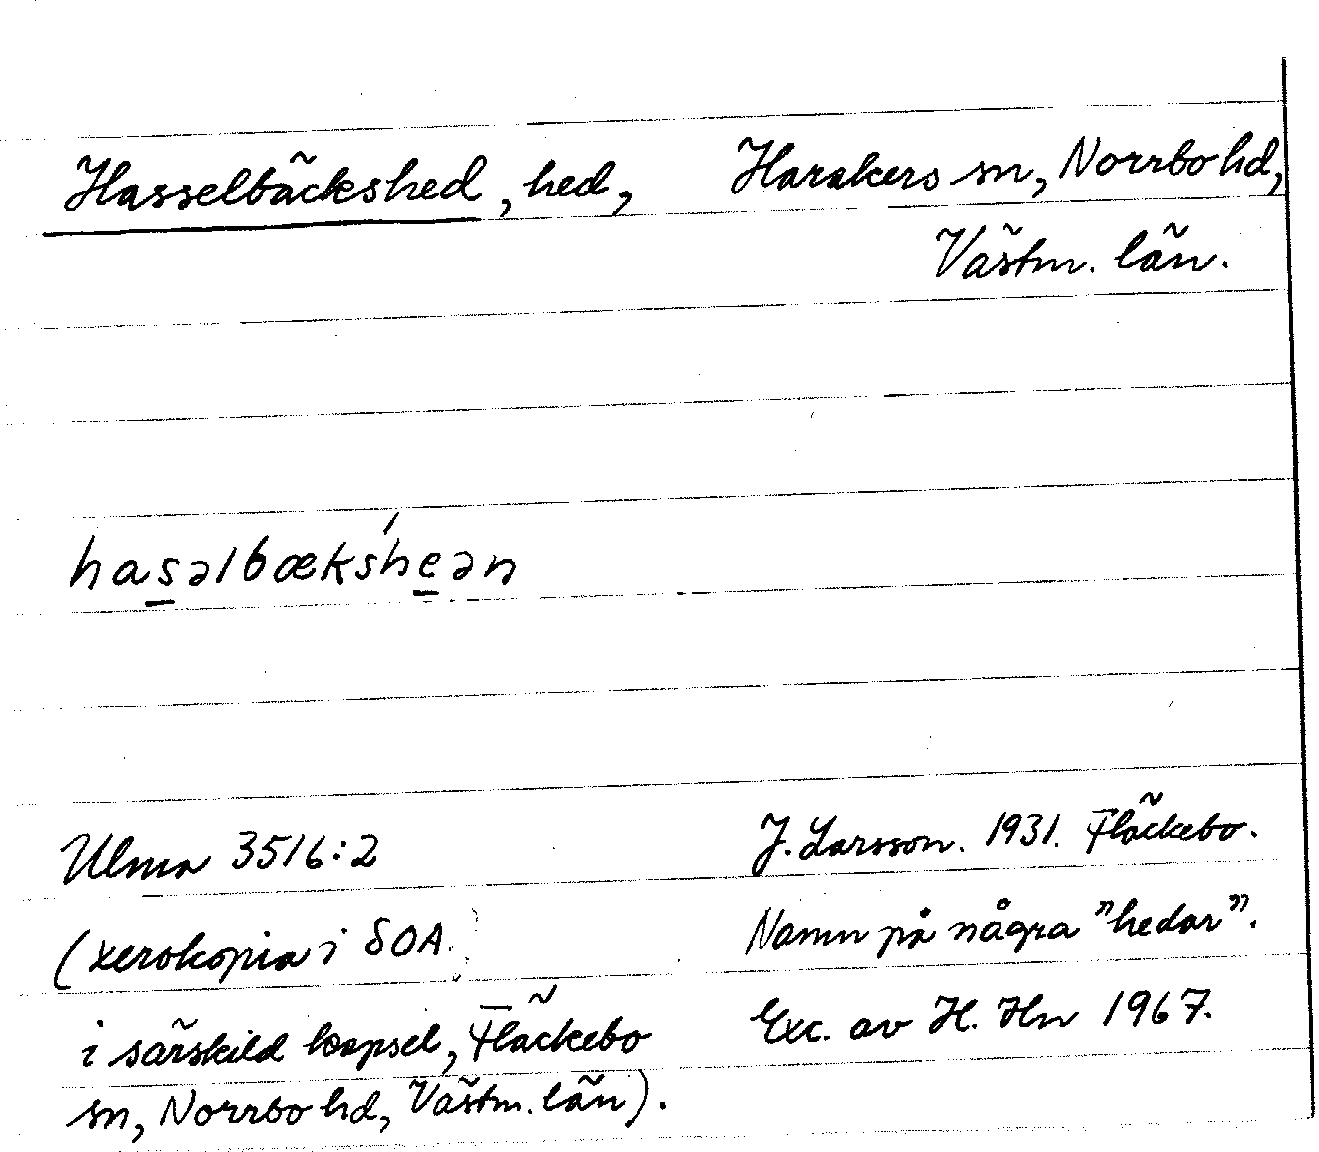 Hasselbäckshed, hed, Harakers sn, Norrbo hd,
Västm. län.
hasəlbæks'heən
Ulma 3516:2
(xerokopia i SOA
i särskild kapsel, Fläckebo
sn, Norrbo hd, Västm. län).
J. Larsson. 1931. Fläckebo.
Namn på några "hedar".
Exc. av H. Hn 1967.